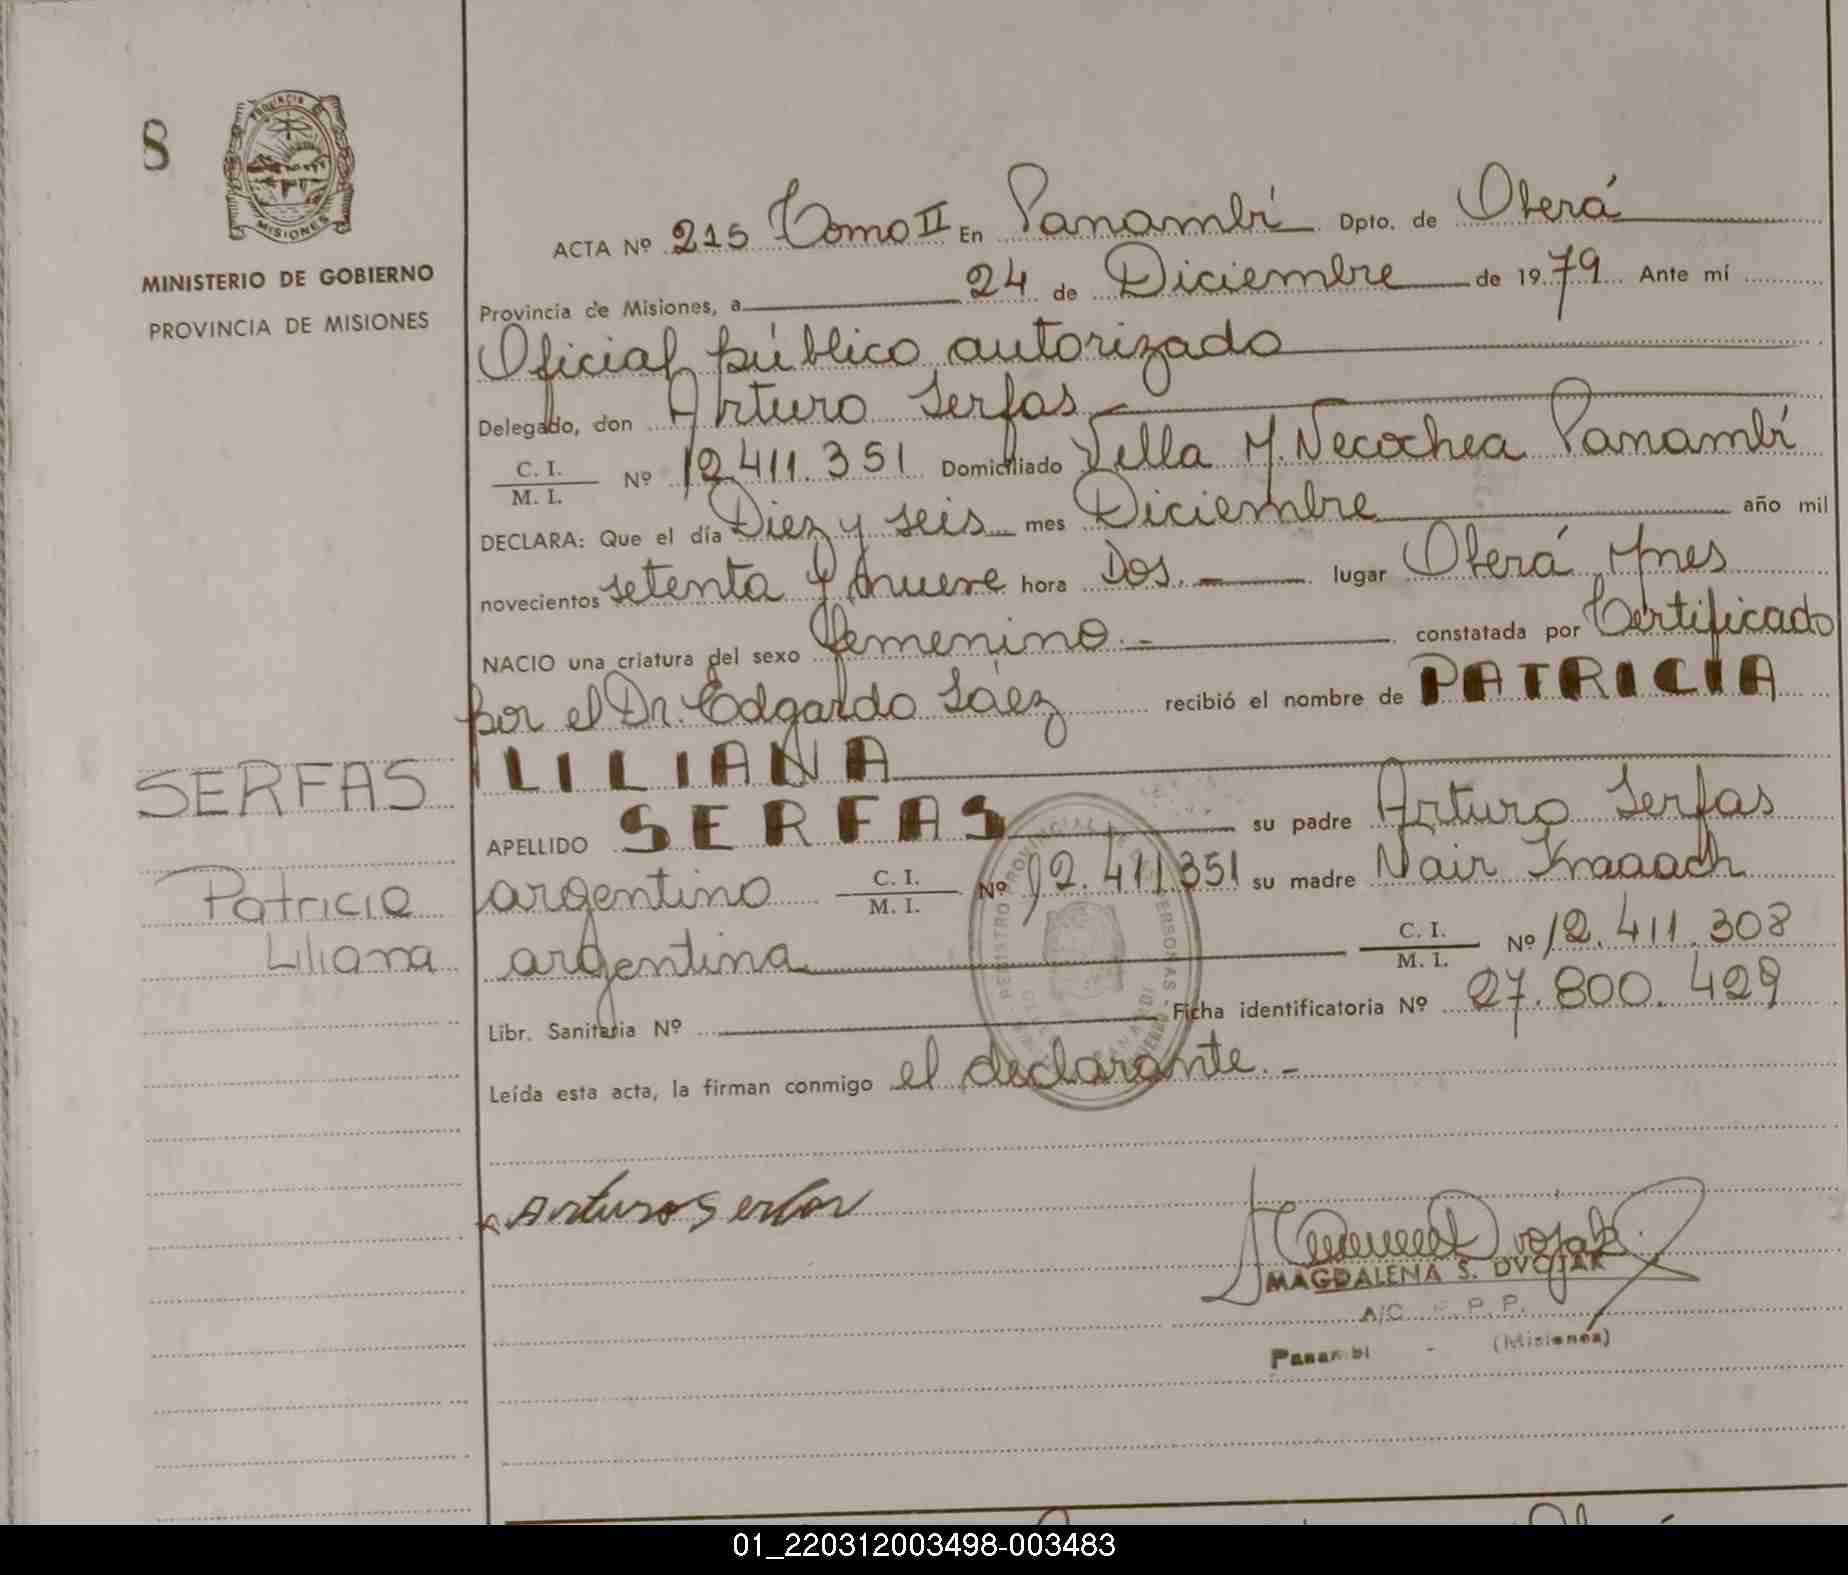 8
PROVINCIA DE
MISIONES
MINISTERIO DE GOBIERNO
PROVINCIA DE MISIONES
SERFAS
Patricia
Liliana
ACTA Nº 215 Tomo II En Panambí Dpto. de Oberá
Provincia de Misiones, a 24 de Diciembre de 1979 Ante mí
Oficial público autorizado
Delegado, don Arturo Serfas
C. I.
M. I. Nº 12.411.351 Domiciliado Villa M. Necochea Panambí
DECLARA: Que el día Diez y seis mes Diciembre año mil
novecientos setenta y nueve hora Dos.- lugar Oberá Mnes
NACIO una criatura del sexo femenino.- constatada por Certificado
por el Dr. Edgardo Sáez recibió el nombre de PATRICIA
LILIANA
APELLIDO SERFAS su padre Arturo Serfas
argentino C. I.
M. I. Nº 12.411.351 su madre Nair Knaaach
argentina C. I.
M. I. Nº 12.411.308
Libr. Sanitaria Nº Ficha identificatoria Nº 27.800.429
Leída esta acta, la firman conmigo el declarante.-
REGISTRO PROVINCIAL
PERSONAS
Arturo Serfas
MAGDALENA S. DVOJAK
A/C P. P.
Panambi - (Misiones)
01_220312003498-003483